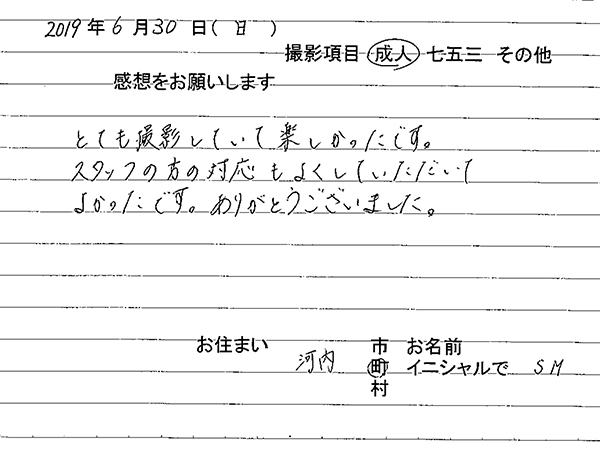 2019年6月30日(日)
撮影項目 成人 七五三 その他
感想をお願いします
とても撮影していて楽しかったです。
スタッフの方の対応もよくしていただいて
よかったです。ありがとうございました。
お住まい 河内 市町村 お名前 イニシャルで SM